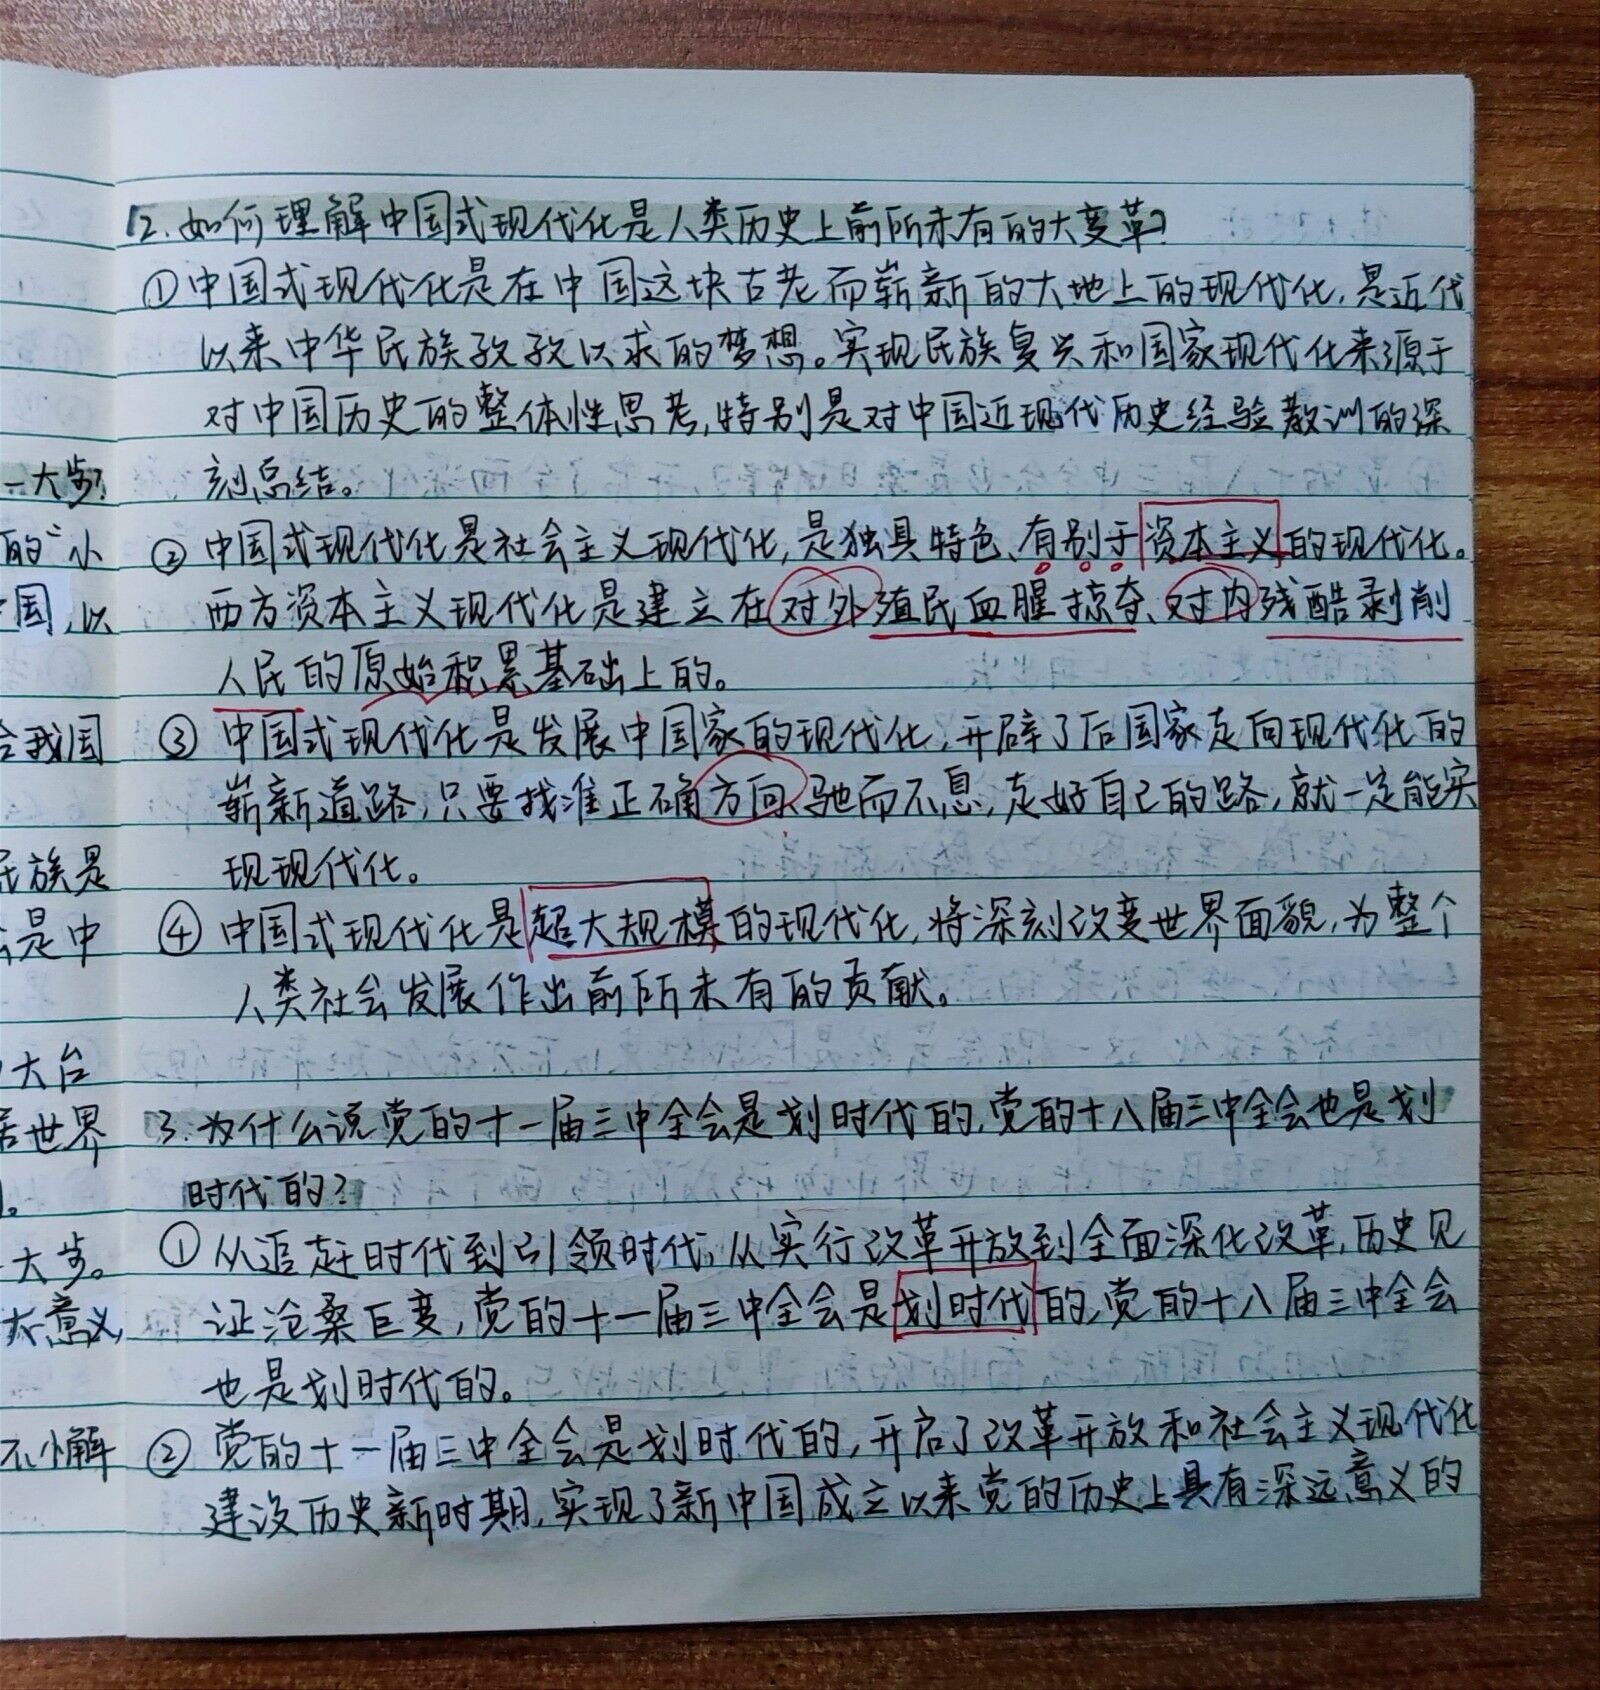 2.如何理解中国式现代化是人类历史上前所未有的大变革?
①中国式现代化是在中国这块古老而崭新的大地上的现代化,是近代
以来中华民族孜孜以求的梦想。实现民族复兴和国家现代化来源于
对中国历史的整体性思考,特别是对中国近现代历史经验教训的深
刻总结。
②中国式现代化是社会主义现代化,是独具特色、有别于资本主义的现代化。
西方资本主义现代化是建立在对外殖民血腥掠夺、对内残酷剥削
人民的原始积累基础上的。
③中国式现代化是发展中国家的现代化,开辟了后国家走向现代化的
崭新道路,只要找准正确方向、驰而不息,走好自己的路,就一定能实
现现代化。
④中国式现代化是超大规模的现代化,将深刻改变世界面貌,为整个
人类社会发展作出前所未有的贡献。
3.为什么说党的十一届三中全会是划时代的,党的十八届三中全会也是划
时代的?
①从追赶时代到引领时代,从实行改革开放到全面深化改革,历史见
证沧桑巨变,党的十一届三中全会是划时代的,党的十八届三中全会
也是划时代的。
②党的十一届三中全会是划时代的,开启了改革开放和社会主义现代化
建设历史新时期,实现了新中国成立以来党的历史上具有深远意义的
一大步?
的"小
国,以
我国
民族是
是中
大台
世界
大步。
大意义,
不懈